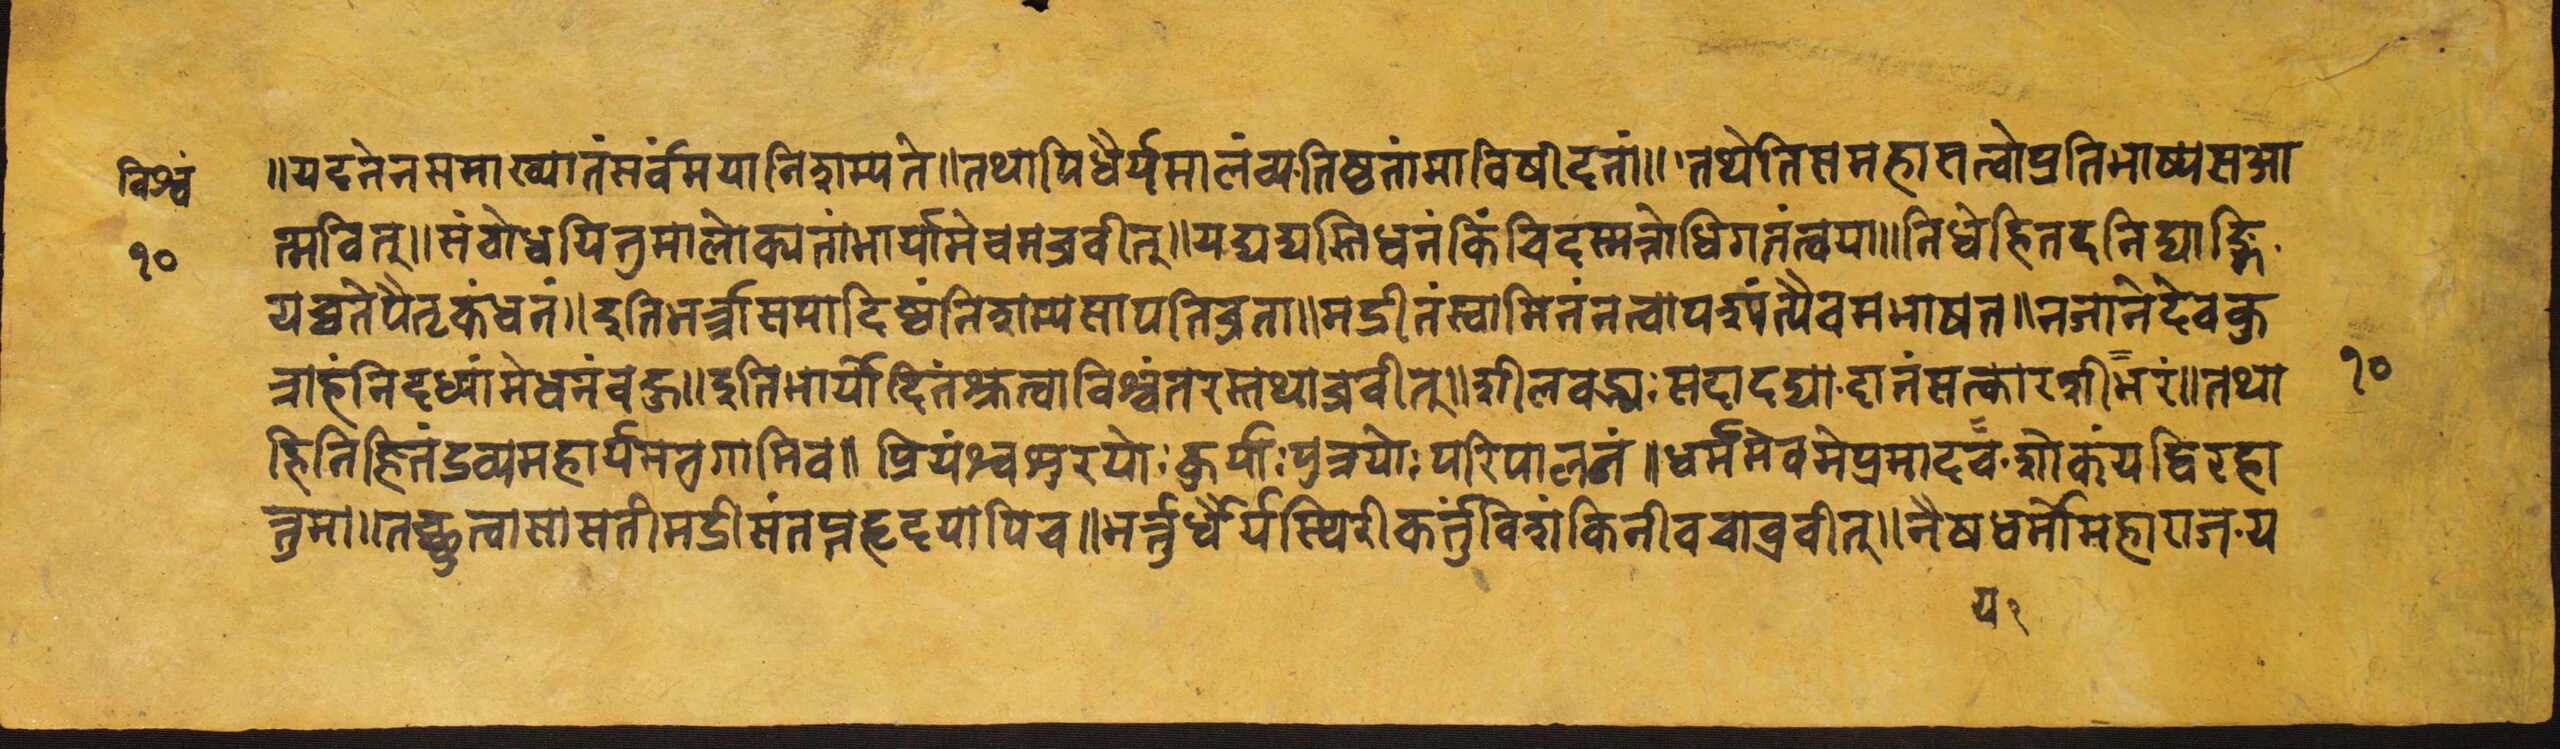 विश्वं
१०
॥यदनेनसमाख्यातंसर्वंमयानिशम्यते॥तथापिधैर्यमालंव्यतिष्ठतांमाविषीदतां॥तथेतिसमहासत्वोप्रतिभाष्यसआ
त्मवित्॥संवोधयितुमालोक्यतांभार्यामेवमब्रवीत्॥यद्यद्यस्तिधनंकिंचिदस्मत्तोधिगतंत्वया॥निधेहितदनिद्याङ्गि
यच्चतेपैतृकंधनं॥इतिभर्त्रासमादिष्टंनिशम्यसापतिव्रता॥मद्रीतंस्वामिनंनत्वापश्यंत्यैवमभाषत॥नजानेदेवकु
त्राहंनिदध्यांमेधनंवहु॥इतिभार्योदितंश्रुत्वाविश्वंतरस्तथाब्रवीत्॥शीलवद्भ्यःसदादद्यादानंसत्कारशीभरं॥तथा
हिनिहितंद्रव्यमहार्यमनुगामिव॥प्रियंश्वशुरयोःकुर्याःपुत्रयोःपरिपालनं॥धर्ममेवमेप्रमादवशोकंयद्विरहा
त्तुमा॥तच्छ्रुत्वासासतीमद्रीसंतप्तहृदयापिच॥भर्त्तुर्धैर्यस्थिरीकर्त्तुंविशंकिनीवचाब्रवीत्॥नैषधर्मोमहाराजय
१०
य१